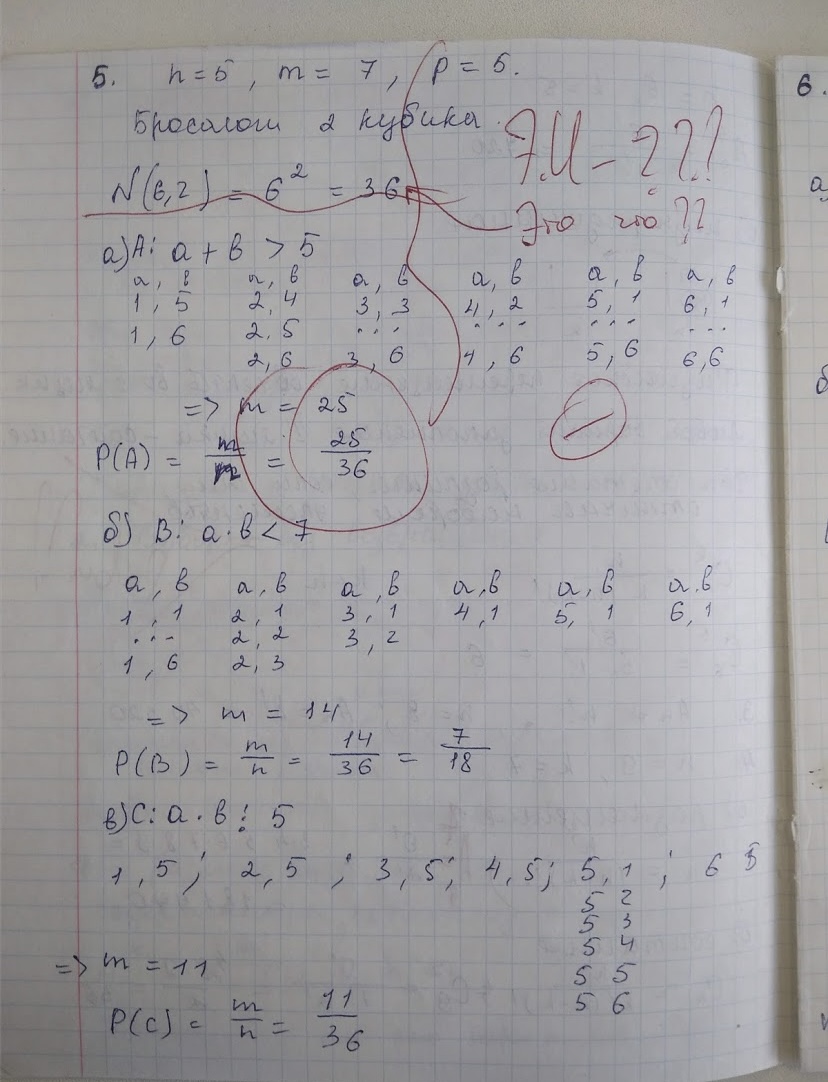 5. n = 5 , m = 7 , p = 5.
Бросалоги 2 кубика.
N(6,2) = 6² = 36
Э.И - ???
Это что ??
а) A: a + b > 5
a, b a, b a, b a, b a, b a, b
1, 5 2, 4 3, 3 4, 2 5, 1 6, 1
1, 6 2, 5 ... ... ... ...
2, 6 3, 6 4, 6 5, 6 6,6
=> m = 25
P(A) = m/n = 25/36
б) B: a · b < 7
a, b a, b a, b a, b a, b a, b
1, 1 2, 1 3, 1 4, 1 5, 1 6, 1
... 2, 2 3, 2
1, 6 2, 3
=> m = 14
P(B) = m/n = 14/36 = 7/18
в) C: a · b ⋮ 5
1, 5 ; 2, 5 ; 3, 5; 4, 5; 5, 1 ; 6 5
5 2
5 3
5 4
5 5
5 6
=> m = 11
P(C) = m/n = 11/36
6.
а)
б